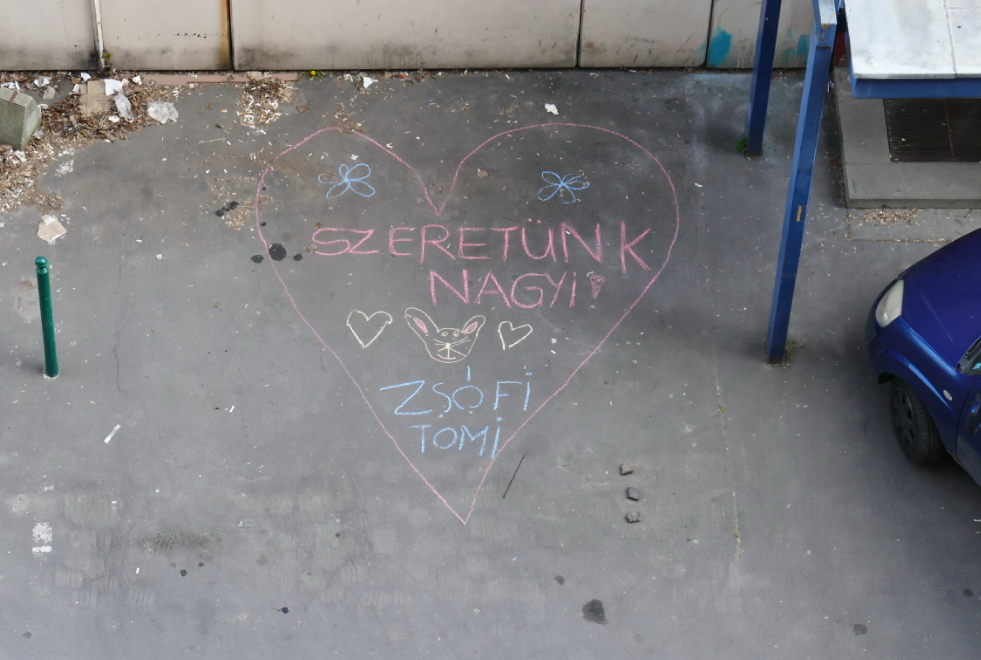 SZERETÜNK
NAGYI!
ZSÓFI
TOMI